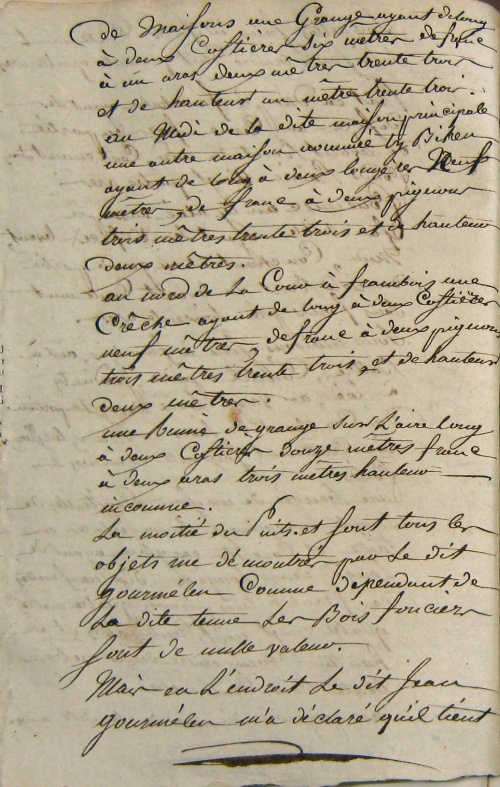 de maisons une Grange ayant de long
à deux Costières six mètres de franc
à un aras deux mètres trente trois
et de hauteur un mètre trente trois.
au Midi de la dite maison principale
une autre maison nommée ty Bihen
ayant de long à deux longères Neuf
mètres, de franc à deux pignons
trois mètres trente trois et de hauteur
deux mètres.
au nord de la Cour à frambois une
Crêche ayant de long à deux Costières
neuf mètres, de franc à deux pignons
trois mètres trente trois, et de hauteur
deux mètres.
une Ruine de grange sur L'aire long
à deux Costières douze mètres franc
à deux aras trois mètres hauteur
inconnue.
La moitié du Puits. et sont tous les
objets me démontrés par Le dit
gourmélen Comme dépendant de
La dite tenue Les Bois fonciers
sont de nulle valeur.
Mais en L'endroit Le dit Jean
gourmélen m'a déclaré qu'il tient